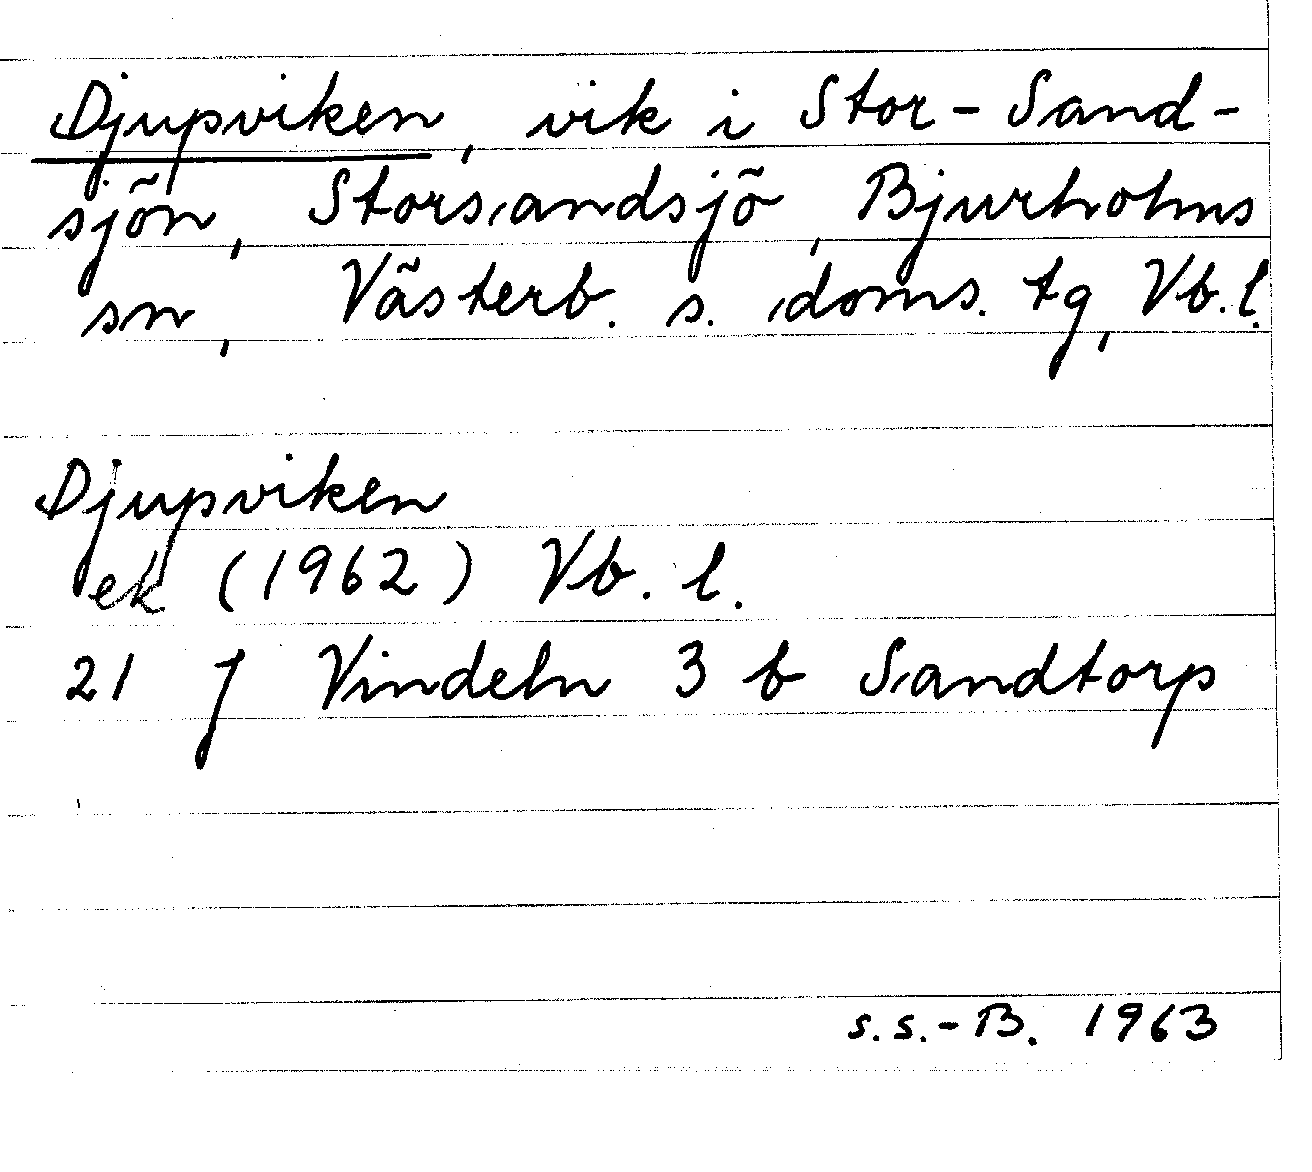 Djupviken, vik i Stor-Sand-
sjön, Storsandsjö, Bjurholms
sn, Västerb. s. doms. tg, Vb.l.
Djupviken
ek (1962) Vb. l.
21 J Vindeln 3 b Sandtorp
s.s.-B. 1963